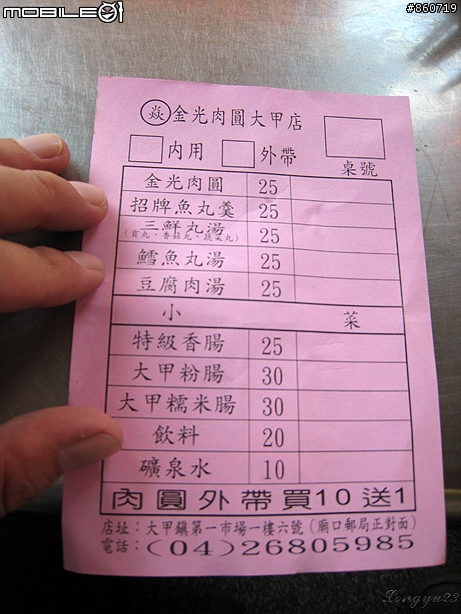 MOBILE01
#860719
焱 金光肉圓大甲店
內用 外帶
桌號
金光肉圓 25
招牌魚丸羹 25
三鮮丸湯 25
(貢丸、香菇丸、蔬菜丸)
鱈魚丸湯 25
豆腐肉湯 25
小 菜
特級香腸 25
大甲粉腸 30
大甲糯米腸 30
飲料 20
礦泉水 10
肉圓外帶買10送1
店址：大甲鎮第一市場一樓六號（廟口郵局正對面）
電話：(04)26805985
Xongyu23